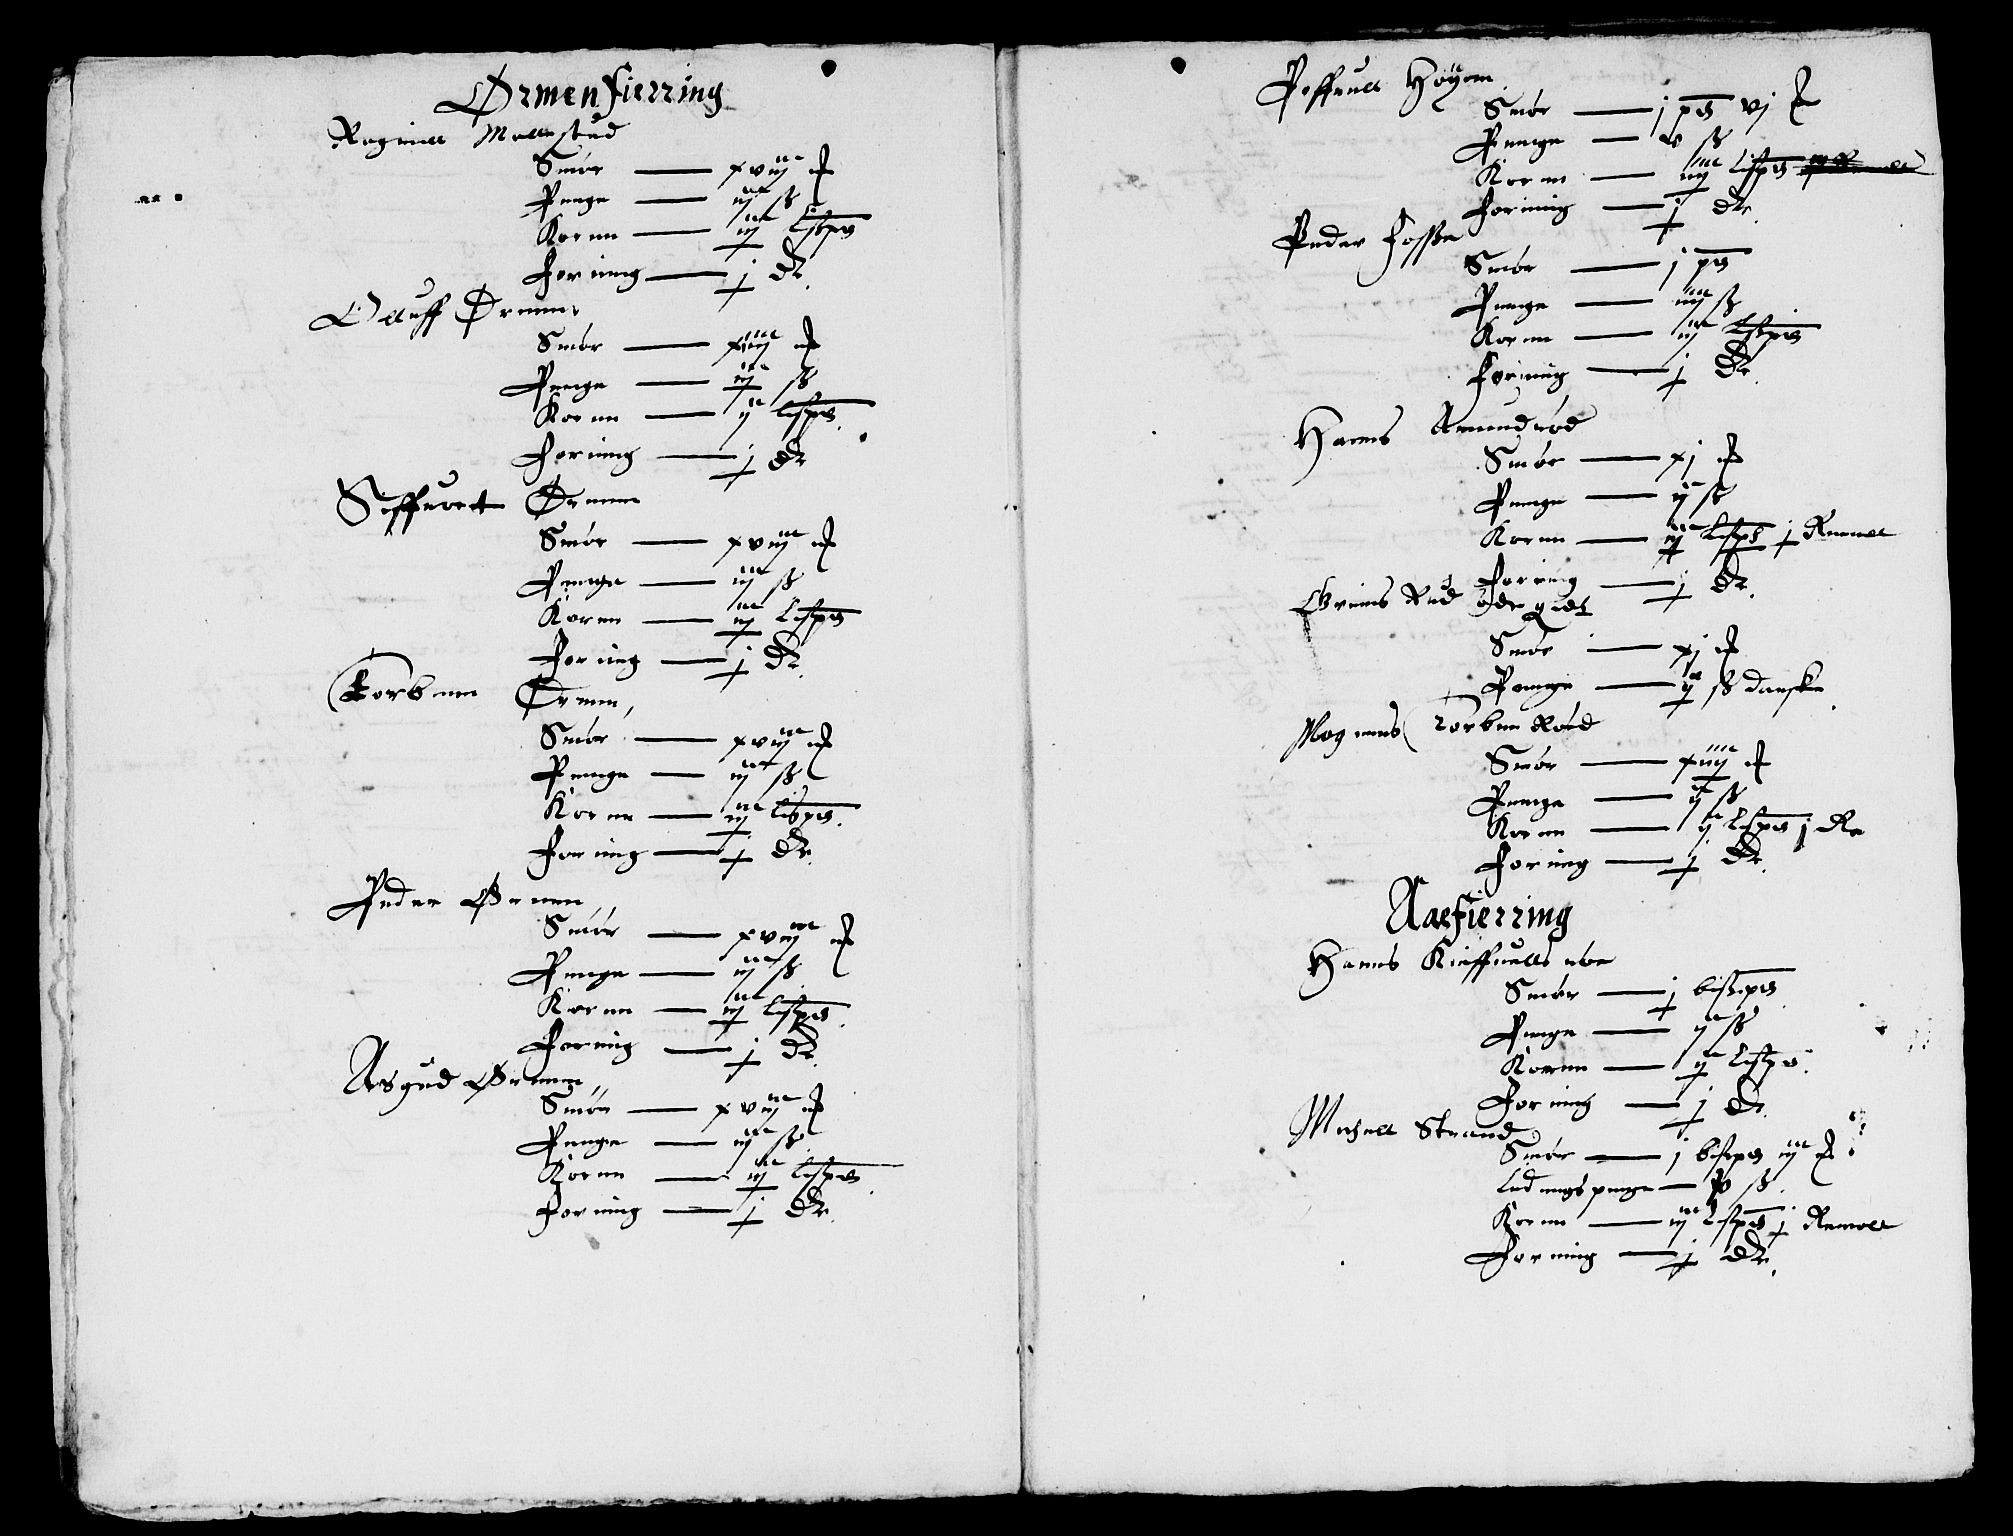 Ørmen fierring
Reginell Mollestad
Smør — xviij m̶k̶
Penge — iij ß
Korn — iij lispd
Foering — j dr
Olluff Ørmen
Smør — xiiij
Penge — iij ß
Korn — ij lispd
Foering — j dr
Siffuort Ørmen
Smør — xviij
Penge — iij ß
Korn — iij Lispd
Foering — j dr
Torbenn Ørmen
Smør — xviij
Penge — iij ß
Korn — iij lispd
Foering — j dr
Peder Ørmen
Smør — xviij
Penge — iij ß
Korn — iij lispd
Foering — j dr
Asgud Ørmen
Smør — xviij
Penge — iij ß
Korn — iij lispd
Foering — j dr
Høyem
Smør — j pd vj
Penge — v ß
Korn — iiij lispd
Foering — j dr
Peder Fosse
Smør — j pd
Penge — iiij ß
Korn — iij lispd
Foering — j dr
Hanns Amundrød
Smør — xj
Penge — ij ß
Korn — iij lispd j Remell
Foering — j dr
Grims Rud øde gidt
Smør — xj
Penge — ij ß danske
Mogenns Torben Rød
Smør — xiiij
Penge — ij ß
Korn — ij lispd j Re
Foering — j dr
Aaefierring
Hanns Kieffuells aae
Smør — j bispd
Penge — ij ß
Korn — ij Lispd
Foering — j dr
Michell Strand
Smør — j bispd iij
Ledings penge — ß
Korn — iij Lispd j Remell
Foering — j dr